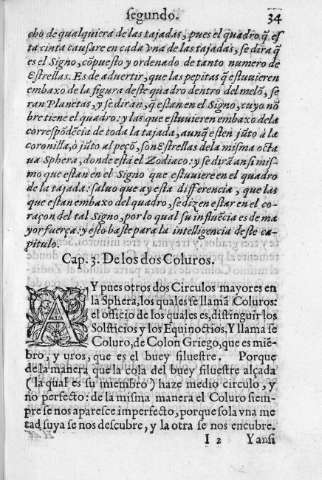 segundo. 34
cho de qualquiera de las tajadas, pues el quadro, q̃ es
ta cinta causare en cada vna de las tajadas, se dira q̃
es el Signo, cõpuesto y ordenado de tanto numero de
Estrellas. Es de advertir, que las pepitas q̃ estuvieren
embaxo de la figura deste quadro dentro del melõ, se
ran Planetas, y se diran, q̃ estan en el Signo, cuyo nõ
bre tiene el quadro: y las que estuvieren embaxo de la
correspõdẽcia de toda la tajada, aunq̃ estẽ jũto à la
coronilla, ò jũto al peçõ, sõn Estrellas de la misma octa
ua Sphera, donde està el Zodiaco: y se dirã ansi mis-
mo que estan en el Signo que estuviere en el quadro
de la tajada: saluo que ay esta differencia, que las
que estan embaxo del quadro, se dizen estar en el co-
raçon del tal Signo, por lo qual su influẽcia es de ma
yor fuerça: y esto baste para la intelligencia deste ca-
pitulo.
Cap. 3. De los dos Coluros.
AY pues otros dos Circulos mayores en
la Sphera, los quales se llamã Coluros:
el officio de los quales es, distinguir los
Solsticios y los Equinoctios, Y llama se
Coluro, de Colon Griego, que es miẽ-
bro, y uros, que es el buey siluestre. Porque
de la manera que la cola del buey siluestre alçada
(la qual es su miembro) haze medio circulo, y
no perfecto: de la misma manera el Coluro siem-
pre se nos aparesce imperfecto, porque sola vna me
tad suya se nos descubre, y la otra se nos encubre.
I 2 Y ansi